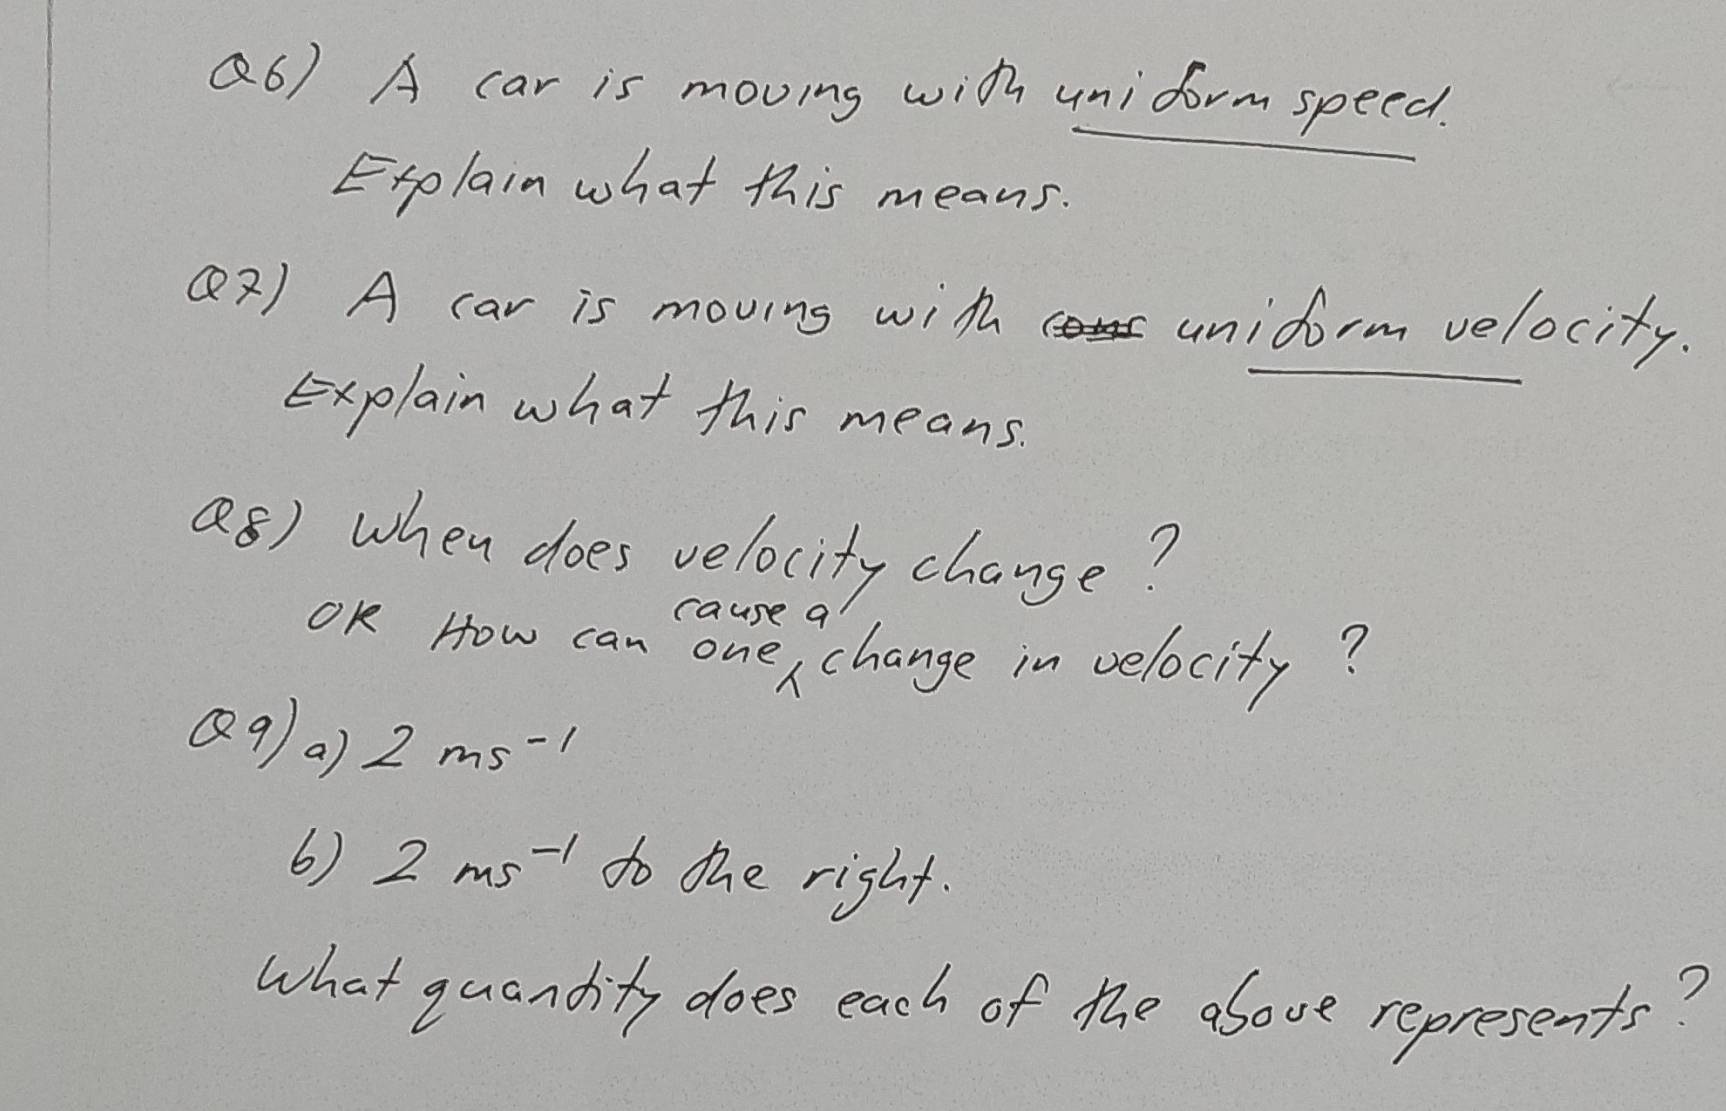 Q6) A car is moving with uniform speed.
Explain what this means.
Q7) A car is moving with uniform velocity.
Explain what this means.
Q8) When does velocity change?
OR How can one cause a change in velocity?
Q9) a) 2 ms⁻¹
b) 2 ms⁻¹ to the right.
What quantity does each of the above represents?